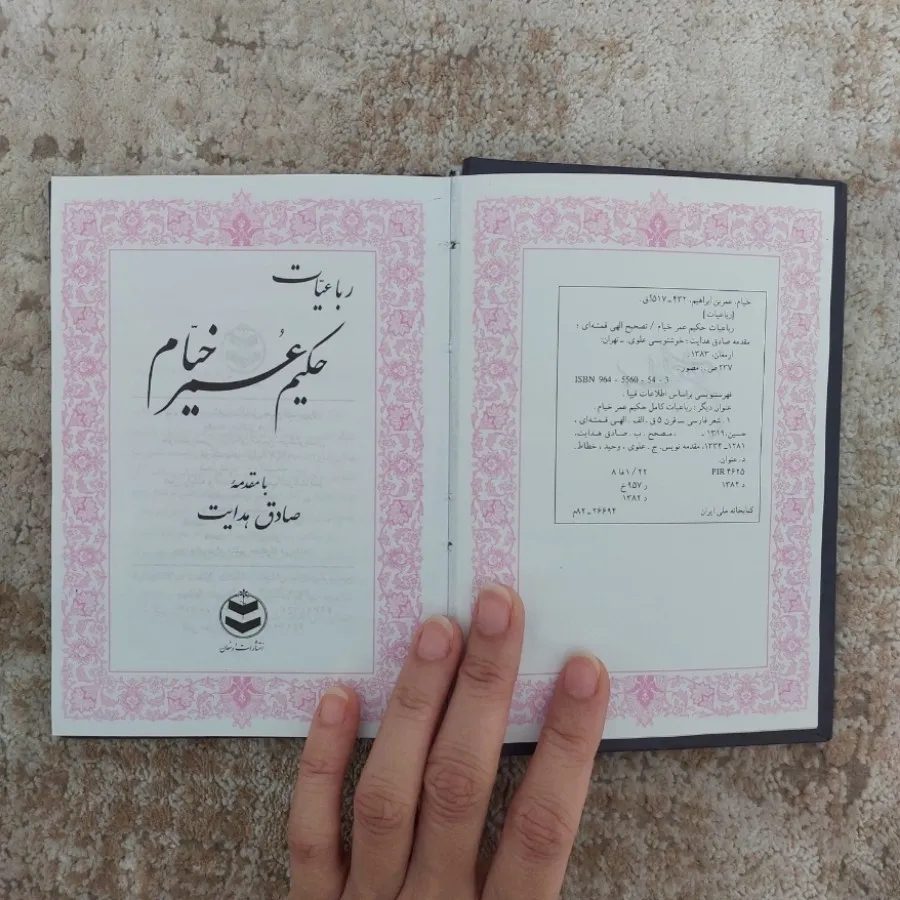 رباعیّات
حکیم عُمر خیّام
با مقدمهٔ
صادق هدایت
انتشارات ارمغان
خیام، عمربن ابراهیم، ۴۳۲ ـ ۵۱۷ق.
[رباعیات]
رباعیات حکیم عمر خیام / تصحیح الهی قمشه‌ای ؛
مقدمه صادق هدایت ؛ خوشنویسی علوی. ـ تهران:
ارمغان، ۱۳۸۳.
۲۳۷ ص. : مصور.
ISBN 964 - 5560 - 54 - 3
فهرستنویسی براساس اطلاعات فیپا .
عنوان دیگر : رباعیات کامل حکیم عمر خیام.
۱. شعر فارسی ــ قرن ۵ق . الف. الهی قمشه‌ای ،
حسین، ۱۳۱۹ ـ ، مصحح . ب . صادق هدایت،
۱۲۸۱ـ ۱۳۳۴، مقدمه نویس. ج . علوی ، وحید ، خطاط.
د. عنوان.
PIR ۴۶۲۵ ۸ فا ۱/ ۲۲
د ۱۳۸۲ ر ۹۵۷ خ
د ۱۳۸۲
کتابخانه ملی ایران ۲۶۶۹۲ ـ ۸۲م